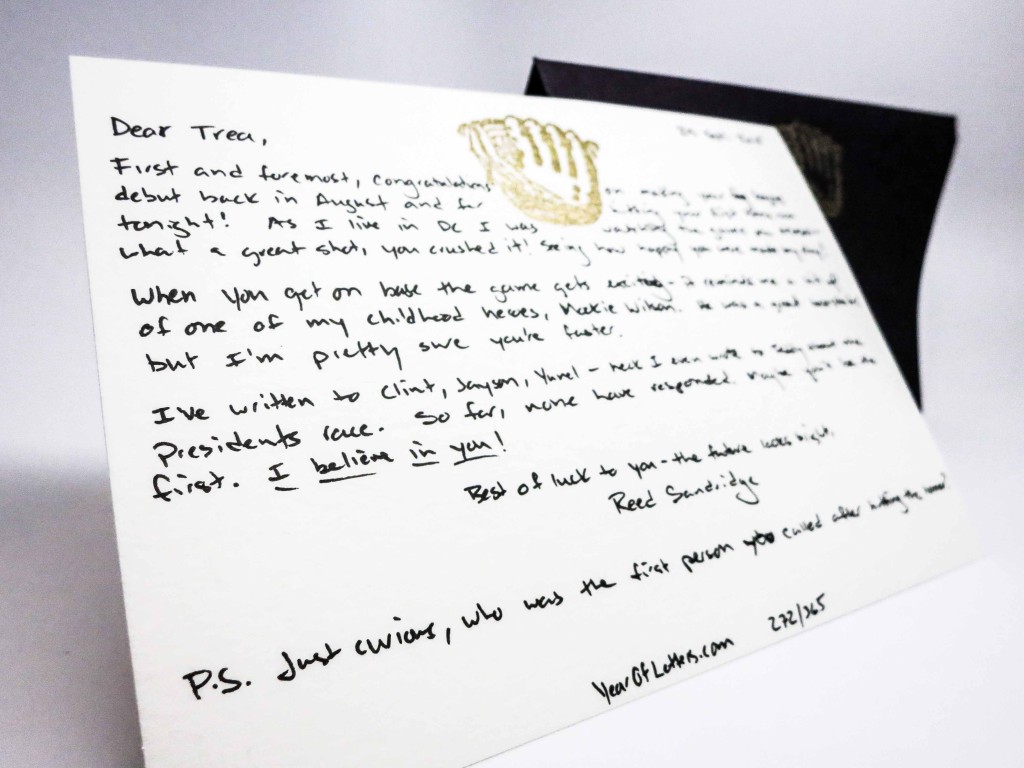 Sept
Dear Trea,
First and foremost, Congratulations on making your league
debut back in August and for hitting your first
tonight! As I live in DC I was watching the game on
what a great shot, you crushed it! Seeing how happy you were made my day!
When you get on base the game gets exciting - it reminds me a bit of
of one of my childhood heroes, Mookie Wilson. He was a great
but I'm pretty sure you're faster.
I've written to Clint, Jayson, Yunel - heck I even wrote to Teddy about the
Presidents race. So far, none have responded. Maybe you'll be the
first. I believe in you!
Best of luck to you - the future looks bright.
Reed Sandridge
P.S. Just curious, who was the first person you called after hitting the homer?
YearOfLetters.com 272/365